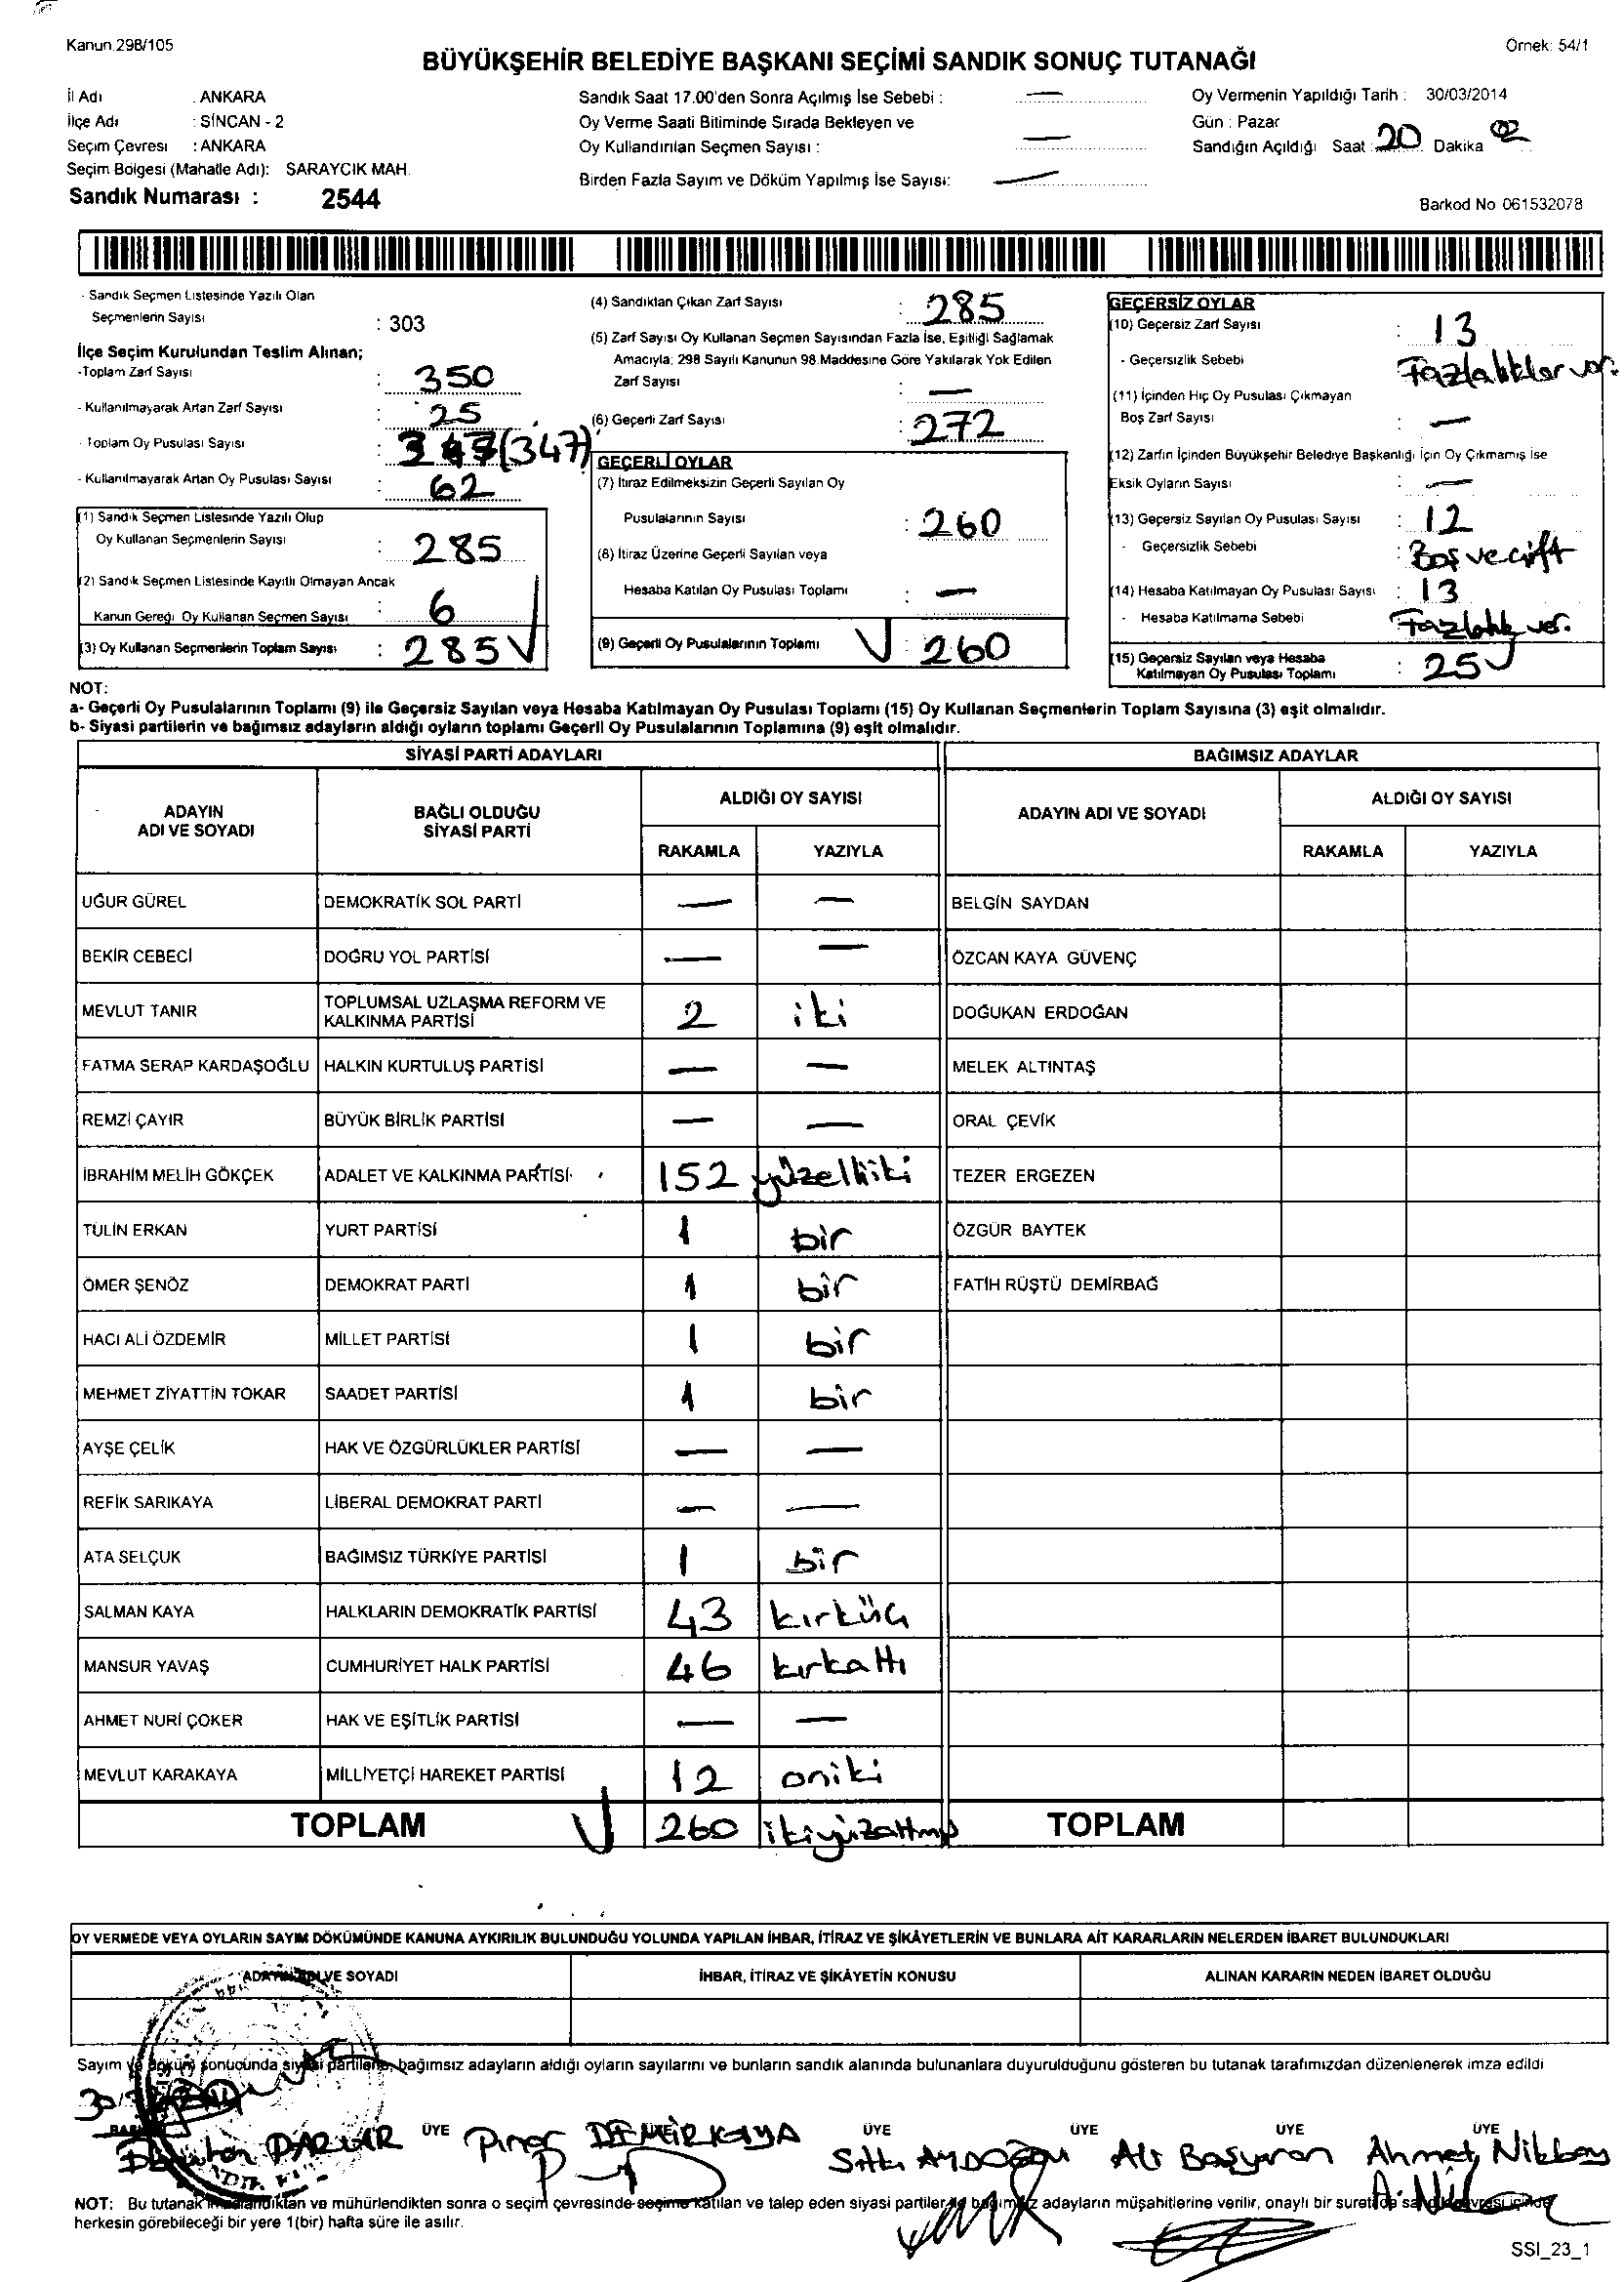 Kanun:298/105
Örnek: 54/1
BÜYÜKŞEHİR BELEDİYE BAŞKANI SEÇİMİ SANDIK SONUÇ TUTANAĞI
İl Adı : ANKARA
İlçe Adı : SİNCAN - 2
Seçim Çevresi : ANKARA
Seçim Bölgesi (Mahalle Adı): SARAYCIK MAH.
Sandık Numarası : 2544
Sandık Saat 17.00'den Sonra Açılmış İse Sebebi : —
Oy Verme Saati Bitiminde Sırada Bekleyen ve
Oy Kullandırılan Seçmen Sayısı : —
Birden Fazla Sayım ve Döküm Yapılmış İse Sayısı: —
Oy Vermenin Yapıldığı Tarih : 30/03/2014
Gün : Pazar
Sandığın Açıldığı Saat : 20 Dakika 02
Barkod No 061532078
- Sandık Seçmen Listesinde Yazılı Olan
Seçmenlerin Sayısı : 303
İlçe Seçim Kurulundan Teslim Alınan;
-Toplam Zarf Sayısı : 350
- Kullanılmayarak Artan Zarf Sayısı : 25
- Toplam Oy Pusulası Sayısı : 347 (347)
- Kullanılmayarak Artan Oy Pusulası Sayısı : 62
(1) Sandık Seçmen Listesinde Yazılı Olup
Oy Kullanan Seçmenlerin Sayısı : 285
(2) Sandık Seçmen Listesinde Kayıtlı Olmayan Ancak
Kanun Gereği Oy Kullanan Seçmen Sayısı : 6
(3) Oy Kullanan Seçmenlerin Toplam Sayısı : 285
(4) Sandıktan Çıkan Zarf Sayısı : 285
(5) Zarf Sayısı Oy Kullanan Seçmen Sayısından Fazla İse, Eşitliği Sağlamak
Amacıyla; 298 Sayılı Kanunun 98.Maddesine Göre Yakılarak Yok Edilen
Zarf Sayısı : —
(6) Geçerli Zarf Sayısı : 272
GEÇERLİ OYLAR
(7) İtiraz Edilmeksizin Geçerli Sayılan Oy
Pusulalarının Sayısı : 260
(8) İtiraz Üzerine Geçerli Sayılan veya
Hesaba Katılan Oy Pusulası Toplamı : —
(9) Geçerli Oy Pusulalarının Toplamı : 260
GEÇERSİZ OYLAR
(10) Geçersiz Zarf Sayısı : 13
- Geçersizlik Sebebi Fazlalıklar var.
(11) İçinden Hiç Oy Pusulası Çıkmayan
Boş Zarf Sayısı : —
(12) Zarfın İçinden Büyükşehir Belediye Başkanlığı İçin Oy Çıkmamış İse
Eksik Oyların Sayısı : —
(13) Geçersiz Sayılan Oy Pusulası Sayısı : 12
- Geçersizlik Sebebi : Boş ve çift
(14) Hesaba Katılmayan Oy Pusulası Sayısı : 13
- Hesaba Katılmama Sebebi Fazlalık var.
(15) Geçersiz Sayılan veya Hesaba
Katılmayan Oy Pusulası Toplamı : 25
NOT:
a- Geçerli Oy Pusulalarının Toplamı (9) ile Geçersiz Sayılan veya Hesaba Katılmayan Oy Pusulası Toplamı (15) Oy Kullanan Seçmenlerin Toplam Sayısına (3) eşit olmalıdır.
b- Siyasi partilerin ve bağımsız adayların aldığı oyların toplamı Geçerli Oy Pusulalarının Toplamına (9) eşit olmalıdır.
SİYASİ PARTİ ADAYLARI
BAĞIMSIZ ADAYLAR
ADAYIN ADI VE SOYADI
BAĞLI OLDUĞU SİYASİ PARTİ
ALDIĞI OY SAYISI
ADAYIN ADI VE SOYADI
ALDIĞI OY SAYISI
RAKAMLA YAZIYLA
RAKAMLA YAZIYLA
UĞUR GÜREL DEMOKRATİK SOL PARTİ — — BELGİN SAYDAN
BEKİR CEBECİ DOĞRU YOL PARTİSİ — — ÖZCAN KAYA GÜVENÇ
MEVLUT TANIR TOPLUMSAL UZLAŞMA REFORM VE KALKINMA PARTİSİ 2 iki DOĞUKAN ERDOĞAN
FATMA SERAP KARDAŞOĞLU HALKIN KURTULUŞ PARTİSİ — — MELEK ALTINTAŞ
REMZİ ÇAYIR BÜYÜK BİRLİK PARTİSİ — — ORAL ÇEVİK
İBRAHİM MELİH GÖKÇEK ADALET VE KALKINMA PARTİSİ 152 yüzelliiki TEZER ERGEZEN
TÜLİN ERKAN YURT PARTİSİ 1 bir ÖZGÜR BAYTEK
ÖMER ŞENÖZ DEMOKRAT PARTİ 1 bir FATİH RÜŞTÜ DEMİRBAĞ
HACI ALİ ÖZDEMİR MİLLET PARTİSİ 1 bir
MEHMET ZİYATTİN TOKAR SAADET PARTİSİ 1 bir
AYŞE ÇELİK HAK VE ÖZGÜRLÜKLER PARTİSİ — —
REFİK SARIKAYA LİBERAL DEMOKRAT PARTİ — —
ATA SELÇUK BAĞIMSIZ TÜRKİYE PARTİSİ 1 bir
SALMAN KAYA HALKLARIN DEMOKRATİK PARTİSİ 43 kırküç
MANSUR YAVAŞ CUMHURİYET HALK PARTİSİ 46 kırkaltı
AHMET NURİ ÇOKER HAK VE EŞİTLİK PARTİSİ — —
MEVLUT KARAKAYA MİLLİYETÇİ HAREKET PARTİSİ 12 oniki
TOPLAM 260 ikiyüzaltmış TOPLAM
OY VERMEDE VEYA OYLARIN SAYIM DÖKÜMÜNDE KANUNA AYKIRILIK BULUNDUĞU YOLUNDA YAPILAN İHBAR, İTİRAZ VE ŞİKÂYETLERİN VE BUNLARA AİT KARARLARIN NELERDEN İBARET BULUNDUKLARI
ADAYIN ADI VE SOYADI İHBAR, İTİRAZ VE ŞİKÂYETİN KONUSU ALINAN KARARIN NEDEN İBARET OLDUĞU
Sayım ve döküm sonucunda siyasi partilerin, bağımsız adayların aldığı oyların sayılarını ve bunların sandık alanında bulunanlara duyurulduğunu gösteren bu tutanak tarafımızdan düzenlenerek imza edildi
ÜYE ÜYE ÜYE ÜYE ÜYE
Pınar DEMİRKAYA Sıtkı AYDOĞDU Ali Başyuran Ahmet Nikbay
NOT: Bu tutanak imzalandıktan ve mühürlendikten sonra o seçim çevresinde seçime katılan ve talep eden siyasi partiler ile bağımsız adayların müşahitlerine verilir, onaylı bir sureti de sandık çevresi içinde
herkesin görebileceği bir yere 1(bir) hafta süre ile asılır.
SSI_23_1